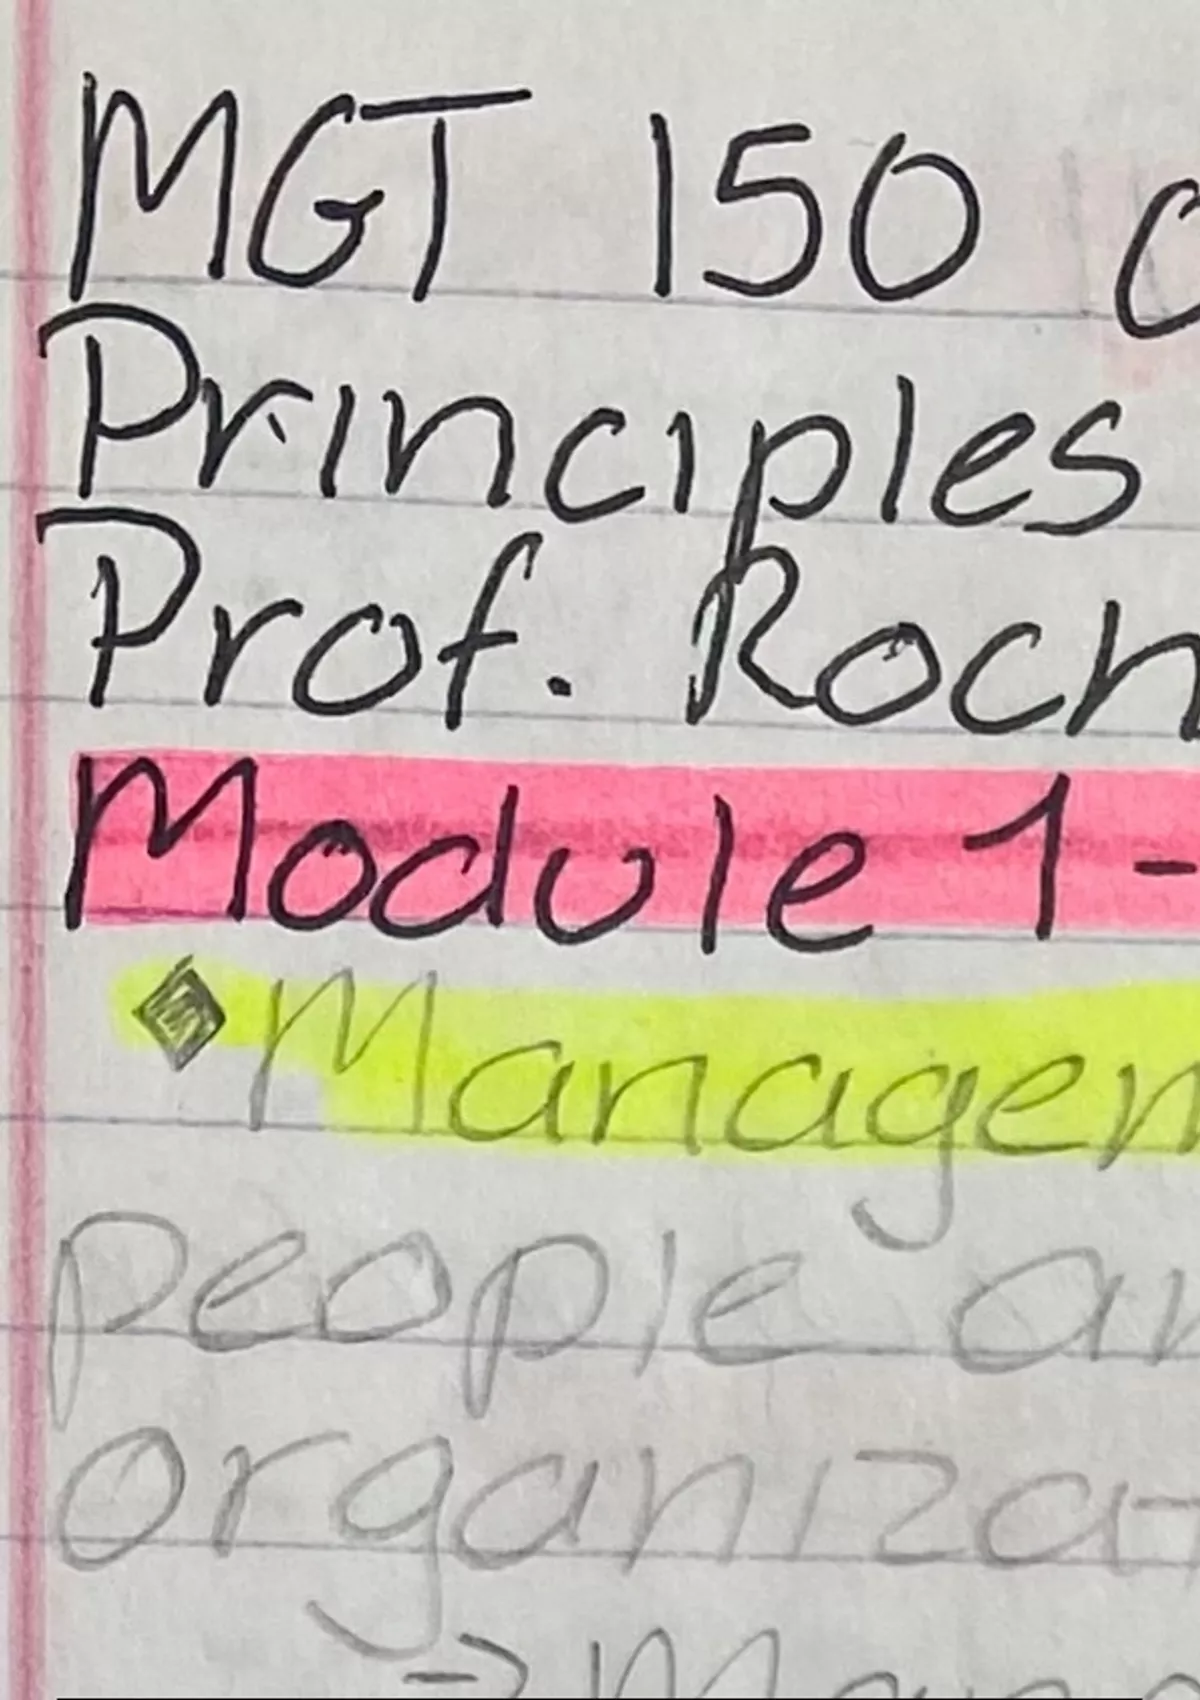 MGT 150
Principles
Prof. Roch
Module 1 -
◆ Managem
people an
organizat
→ Mana